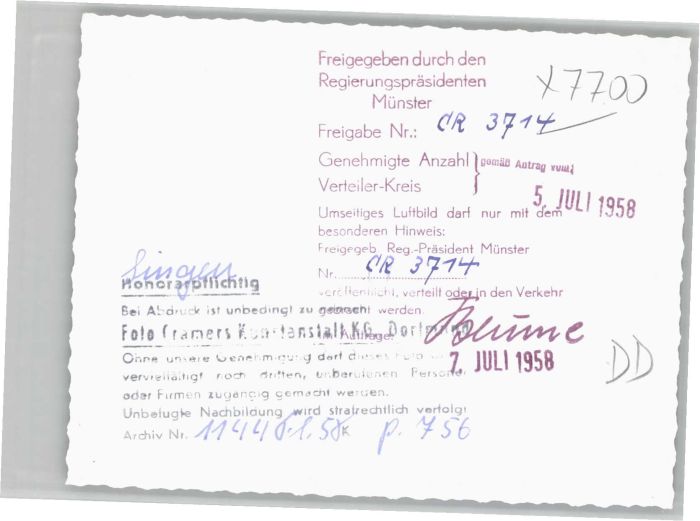 Freigegeben durch den
Regierungspräsidenten
Münster
x7700
Freigabe Nr.: CR 3714
Genehmigte Anzahl } gemäß Antrag vom:
Verteiler-Kreis
5. JULI 1958
Umseitiges Luftbild darf nur mit dem
besonderen Hinweis:
Freigegeb. Reg.-Präsident Münster
Nr. CR 3714
veröffentlicht, verteilt oder in den Verkehr
gebracht werden.
Im Auftrage:
Blume
7. JULI 1958
DD
Singen
Honorarpflichtig
Bei Abdruck ist unbedingt zu
Foto Cramers Kunstanstalt KG, Dortmund
Ohne unsere Genehmigung darf dieses Foto
vervielfältigt noch dritten, unberufenen Personen
oder Firmen zugängig gemacht werden.
Unbefugte Nachbildung wird strafrechtlich verfolgt
Archiv Nr. 1144 K p. 756